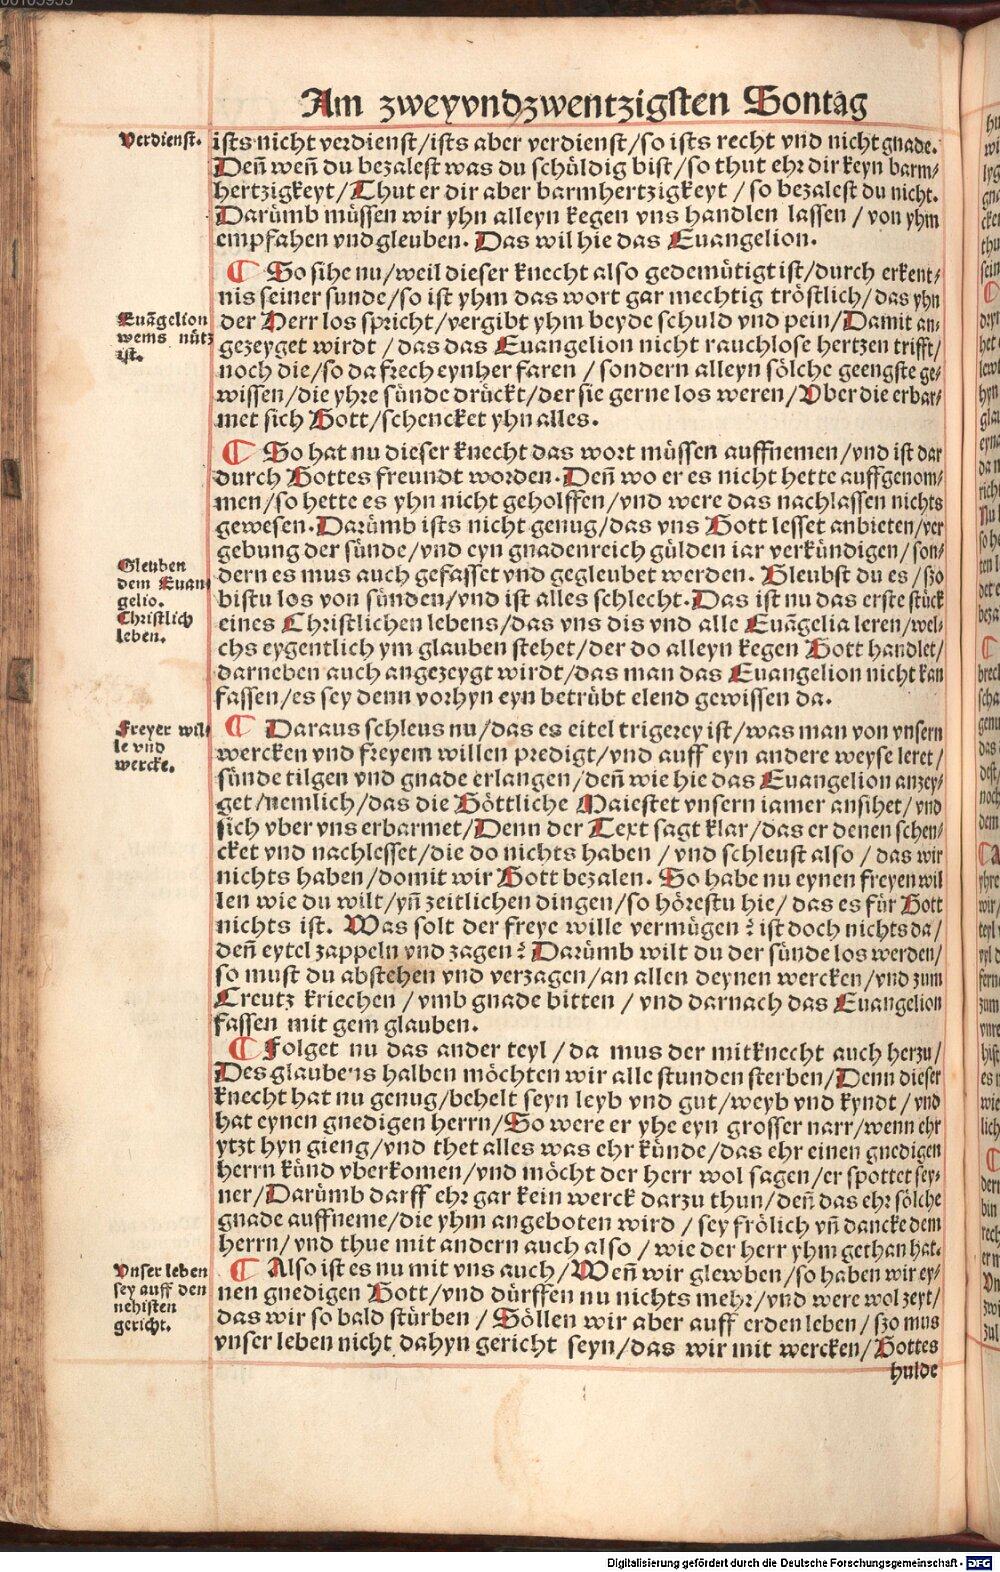 Am zweyvndzwentzigsten Sontag
Verdienst.
ists nicht verdienst/ists aber verdienst/so ists recht vnd nicht gnade.
Deñ weñ du bezalest was du schůldig bist/so thut ehr dir keyn barm-
hertzigkeyt/Thut er dir aber barmhertzigkeyt/so bezalest du nicht.
Darůmb můssen wir yhn alleyn kegen vns handlen lassen/von yhm
empfahen vnd gleuben. Das wil hie das Euangelion.
¶ So sihe nu/weil dieser knecht also gedemůtigt ist/durch erkent-
nis seiner sunde/so ist yhm das wort gar mechtig trőstlich/das yhn
Euãgelion
wems nůtz
ist.
der Herr los spricht/vergibt yhm beyde schuld vnd pein/Damit an-
gezeyget wirdt/das das Euangelion nicht rauchlose hertzen trifft/
noch die/so da frech eynher faren/sondern alleyn sőlche geengste ge-
wissen/die yhre sůnde drůckt/der sie gerne los weren/Vber die erbar-
met sich Gott/schencket yhn alles.
¶ So hat nu dieser knecht das wort můssen auffnemen/vnd ist dar
durch Gottes freundt worden. Deñ wo er es nicht hette auffgenom-
men/so hette es yhn nicht geholffen/vnd were das nachlassen nichts
gewesen. Darůmb ists nicht genug/das vns Gott lesset anbieten/ver
gebung der sůnde/vnd eyn gnadenreich gůlden iar verkůndigen/son-
Gleuben
dem Euan-
gelio.
Christlich
leben.
dern es mus auch gefasset vnd gegleubet werden. Gleubst du es/szo
bistu los von sůnden/vnd ist alles schlecht. Das ist nu das erste stůck
eines Christlichen lebens/das vns dis vnd alle Euãgelia leren/wel-
chs eygentlich ym glauben stehet/der do alleyn kegen Gott handlet/
darneben auch angezeygt wirdt/das man das Euangelion nicht kan
fassen/es sey denn vorhyn eyn betrůbt elend gewissen da.
Freyer wil-
le vnd
wercke.
¶ Daraus schleus nu/das es eitel trigerey ist/was man von vnsern
wercken vnd freyem willen predigt/vnd auff eyn andere weyse leret/
sůnde tilgen vnd gnade erlangen/deñ wie hie das Euangelion anzey-
get/nemlich/das die Gőttliche Maiestet vnsern iamer ansihet/vnd
sich vber vns erbarmet/Denn der Text sagt klar/das er denen schen-
cket vnd nachlesset/die do nichts haben/vnd schleust also/das wir
nichts haben/domit wir Gott bezalen. So habe nu eynen freyen wil
len wie du wilt/yñ zeitlichen dingen/so hőrestu hie/das es fůr Gott
nichts ist. Was solt der freye wille vermůgen? ist doch nichts da/
deñ eytel zappeln vnd zagen? Darůmb wilt du der sůnde los werden/
so must du abstehen vnd verzagen/an allen deynen wercken/vnd zum
Creutz kriechen/vmb gnade bitten/vnd darnach das Euangelion
fassen mit gem glauben.
¶ Folget nu das ander teyl/da mus der mitknecht auch herzu/
Des glaubens halben mőchten wir alle stunden sterben/Denn dieser
knecht hat nu genug/behelt seyn leyb vnd gut/weyb vnd kyndt/vnd
hat eynen gnedigen herrn/So were er yhe eyn grosser narr/wenn ehr
ytzt hyn gieng/vnd thet alles was ehr kůnde/das ehr einen gnedigen
herrn kůnd vberkomen/vnd mőcht der herr wol sagen/er spottet sey-
ner/Darůmb darff ehr gar kein werck darzu thun/deñ das ehr sőlche
gnade auffneme/die yhm angeboten wird/sey frőlich vñ dancke dem
herrn/vnd thue mit andern auch also/wie der herr yhm gethan hat.
Vnser leben
sey auff den
nehisten
gericht.
¶ Also ist es nu mit vns auch/Weñ wir glewben/so haben wir ey-
nen gnedigen Gott/vnd dürffen nu nichts mehr/vnd were wol zeyt/
das wir so bald stůrben/Sőllen wir aber auff erden leben/szo mus
vnser leben nicht dahyn gericht seyn/das wir mit wercken/Gottes
hulde
Digitalisierung gefördert durch die Deutsche Forschungsgemeinschaft - DFG